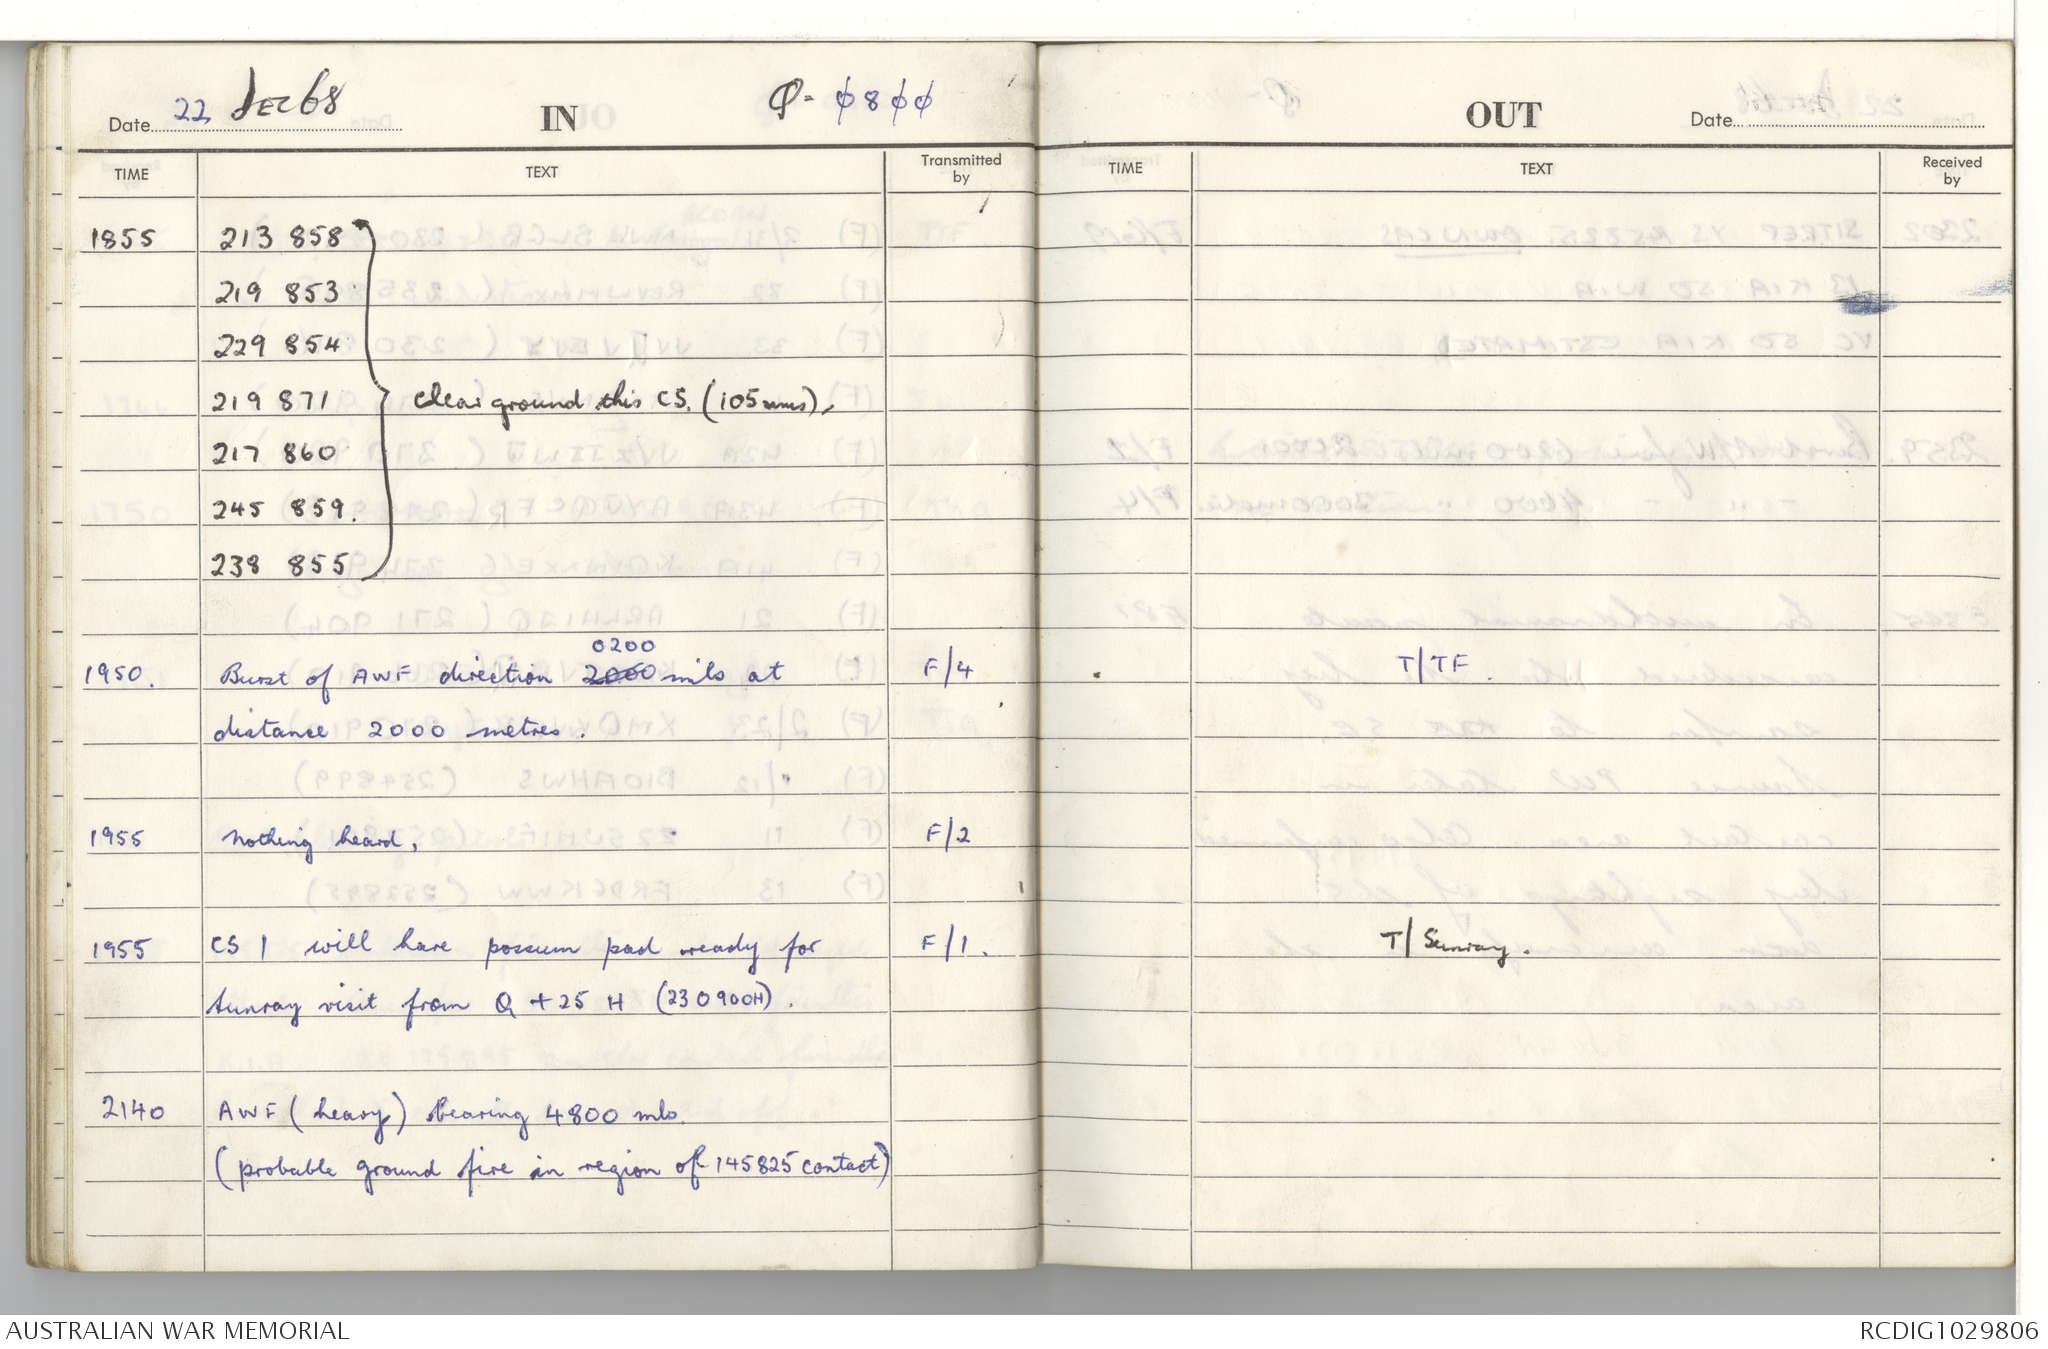 Date 22 Dec 68 IN Q- 0800
TIME TEXT Transmitted by
1855 213 858
219 853
229 854
219 871 clear ground this CS. (105mms).
217 860
245 859.
238 855
0200
1950. Burst of AWF direction 2000 mils at F/4
distance 2000 metres.
1955 Nothing heard. F/2
1955 CS 1 will have possum pad ready for F/1.
Sunray visit from Q + 25 H (230900H).
2140 AWF (heavy) bearing 4800 mls.
(probable ground fire in region of 145825 contact)
OUT Date
TIME TEXT Received by
T/TF.
T/Sunray.
AUSTRALIAN WAR MEMORIAL RCDIG1029806